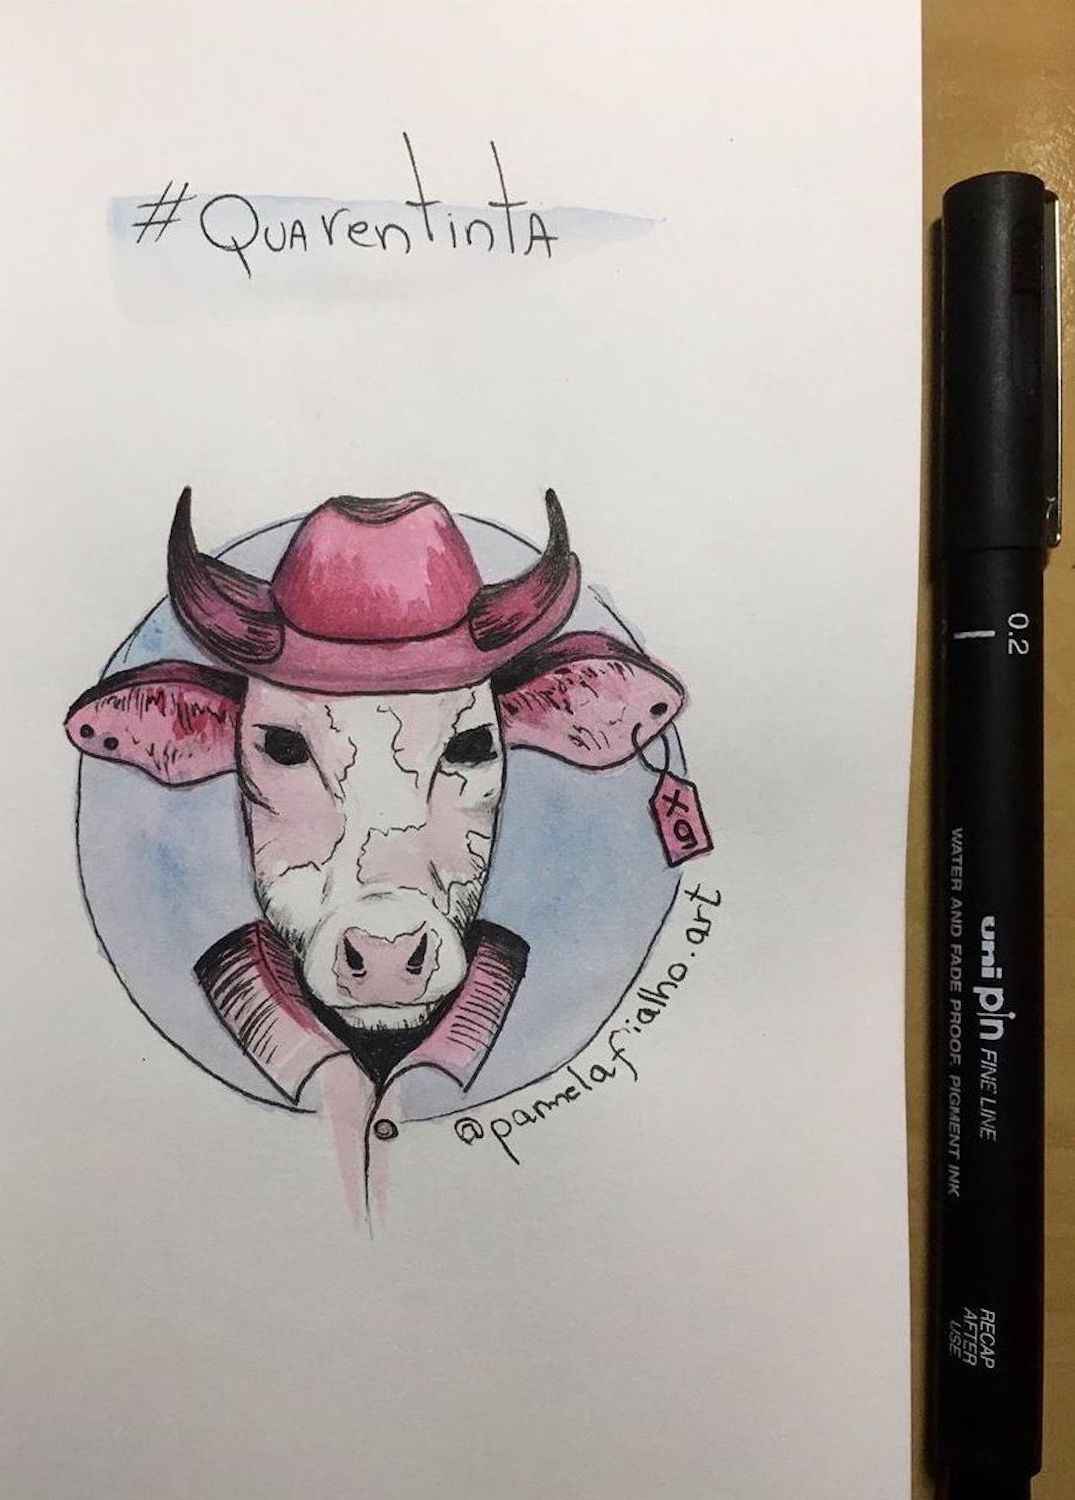 #QuArentintA
xg
@pamelafialho.art
0.2
uni pin FINE LINE
WATER AND FADE PROOF, PIGMENT INK
RECAP
AFTER
USE